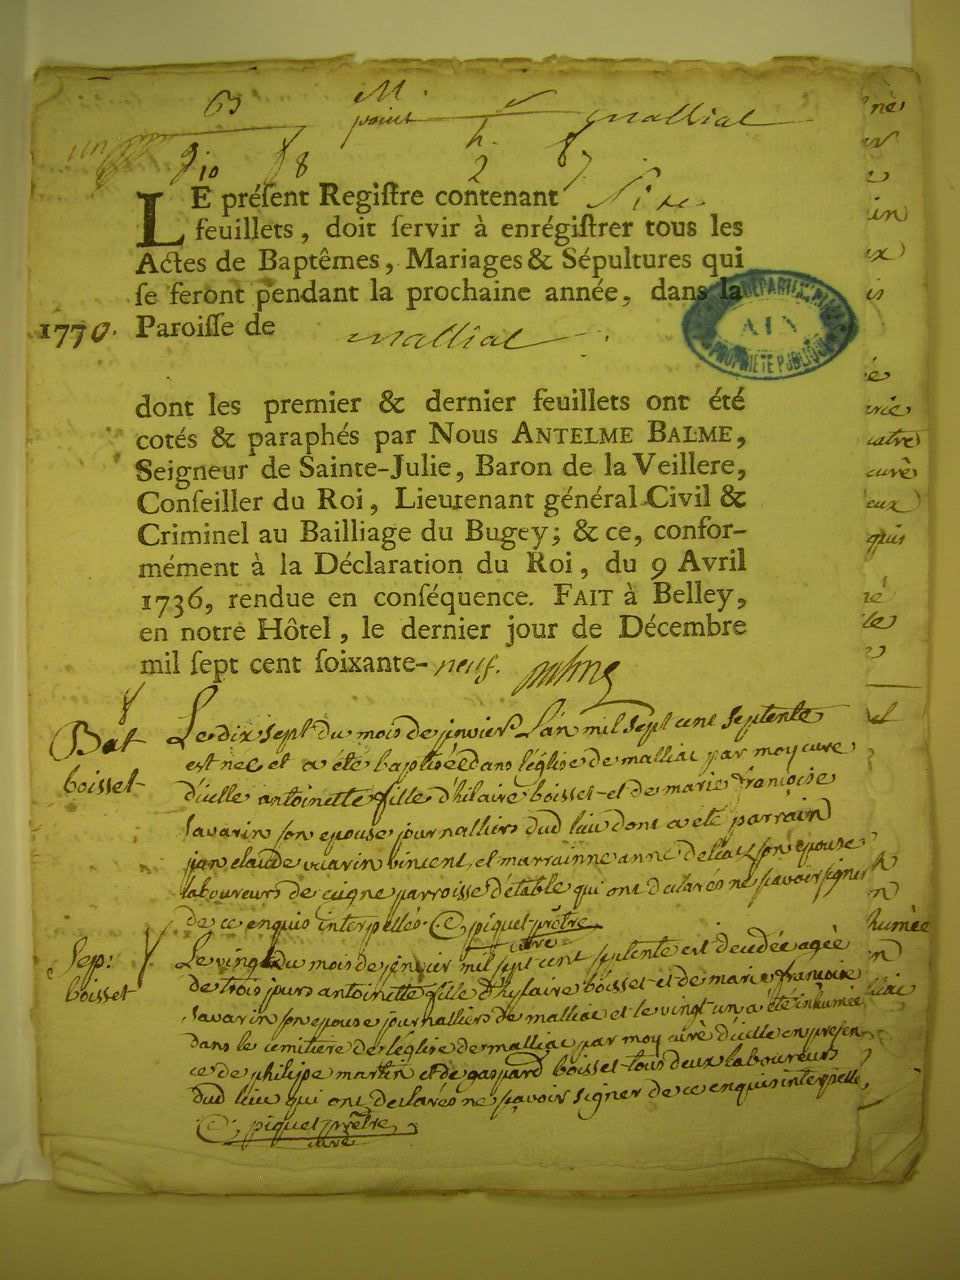 B M.
point malliat
h.
10 8 2 87
LE préſent Regiſtre contenant Six
feuillets, doit ſervir à enrégiſtrer tous les
Actes de Baptêmes, Mariages & Sépultures qui
ſe feront pendant la prochaine année, dans la
1770. Paroiſſe de malliat
DÉPARTEM
AIN
PROPRIÉTÉ PUBLIQUE
dont les premier & dernier feuillets ont été
cotés & paraphés par Nous ANTELME BALME,
Seigneur de Sainte-Julie, Baron de la Veillere,
Conſeiller du Roi, Lieutenant général Civil &
Criminel au Bailliage du Bugey; & ce, confor-
mément à la Déclaration du Roi, du 9 Avril
1736, rendue en conſéquence. FAIT à Belley,
en notre Hôtel, le dernier jour de Décembre
mil ſept cent ſoixante-neuf. Balme
Bat
boisset
Le dix sept du mois de janvier L'an mil sept cent septente
est née et a été baptisée dans l'église de malliat par moy curé
d'icelle antoinette fille d'hilaire boisset et de marie françoise
Savarin son epouse journalliers dud lieu dont a eté parrain
jean claude vuarin vincent et marrainne anne son epouse
laboureurs de cuigne parroisse d'étable qui ont declarés ne sçavoir signer
de ce enquis interpellés. C. piquet prêtre
curé
Sep:
boisset
Le vingt du mois de janvier mil sept cent septente est decedée agée
de trois jours antoinette fille d'hylaire boisset et de marie françoise
Savarin son epouse journalliers de malliat et le vingt un a été inhumée
dans le cemitiere de l'église de malliat par moy curé d'icelle en presen
ce de philipe martin et de gaspard boisset tous deux laboureurs
dud lieu qui ont declarés ne sçavoir signer de ce enquis interpellés
C. piquet prêtre
curé